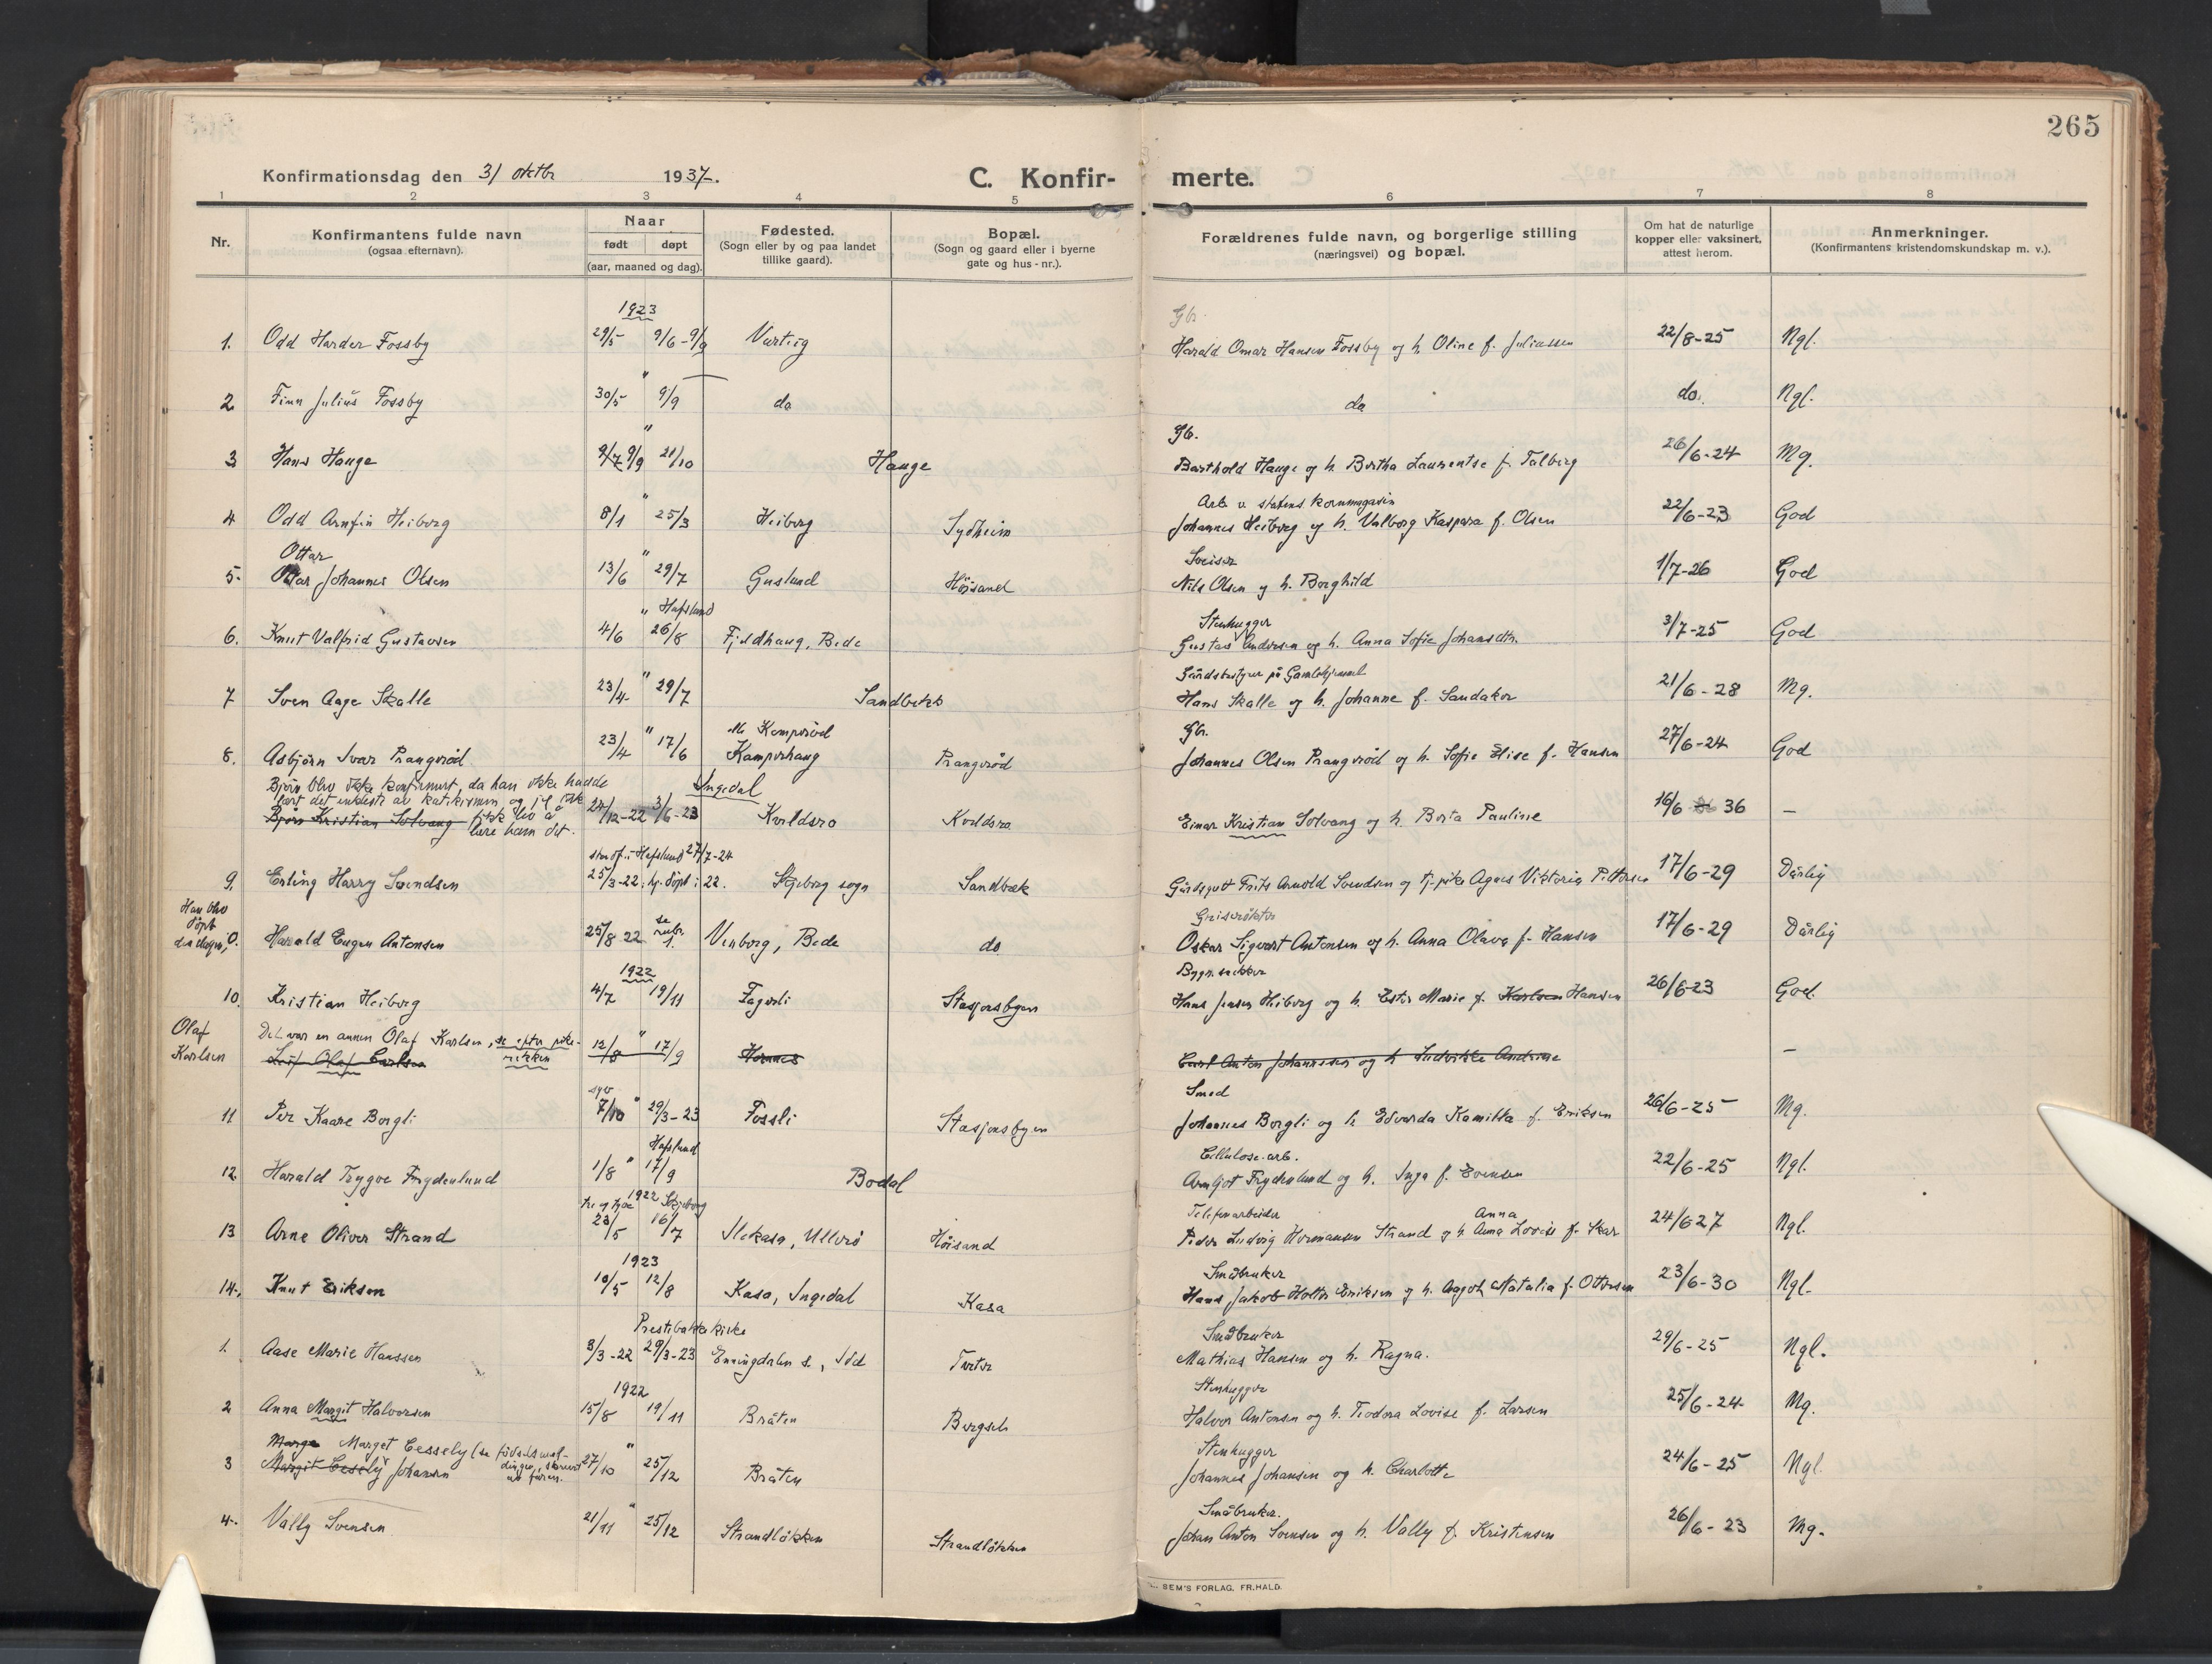 265
Konfirmationsdag den 31 oktbr 1937.
C. Konfir-merte.
1 2 3 4 5 6 7 8
Nr.
Konfirmantens fulde navn
(ogsaa efternavn).
Naar
født døpt
(aar, maaned og dag).
Fødested.
(Sogn eller by og paa landet
tillike gaard).
Bopæl.
(Sogn og gaard eller i byerne
gate og hus-nr.).
Forældrenes fulde navn, og borgerlige stilling
(næringsvei) og bopæl.
Om hat de naturlige
kopper eller vaksinert,
attest herom.
Anmerkninger.
(Konfirmantens kristendomskundskap m. v.).
1923
Gbr.
1. Odd Harder Fossby 29/5 9/6-9/9 Vartrig Harald Omar Hansen Fossby og h. Oline f. Juliussen 22/8-25 Ngl.
"
2 Finn Julius Fossby 30/5 9/9 do do do. Ngl.
" Gb.
3 Hans Hauge 9/7 9/9 21/10 Hauge Barthold Hauge og h. Bertha Laurentse f. Talberg 26/6-24 Mg.
" Arb. v. statens kornmagasin
4 Odd Arnfin Heiberg 8/1 25/3 Heiberg Sydheim Johannes Heiberg og h. Valborg Kaspara f. Olsen 22/6-23 God
Ottar " Sveiser
5. Ottar Johannes Olsen 13/6 29/7 Guslund Höisand Nils Olsen og h. Borghild 1/7-26 God
" Hafslund Stenhugger
6. Knut Valfrid Gustavsen 4/6 26/8 Fjeldhaug, Bede Gustav Andersen og h. Anna Sofie Johansdtr. 3/7-25 God
" Gårdsbestyrer på Gamlehjemmet
7 Sven Aage Skalle 23/4 29/7 Sandbæk Hans Skalle og h. Johanne f. Sandaker 21/6-28 Mg.
" Kamperöd Gb.
8. Asbjörn Ivar Prangeröd 23/4 17/6 Kamperhaug Prangeröd Johannes Olsen Prangeröd og h. Sofie Elise f. Hansen 27/6-24 God
Björn blev ikke konfirmert, da han ikke hadde
lært det enkleste av katekismen og jeg ikke Ingedal
fikk lov å
Björn Kristian Solvang lære ham det. 24/12-22 3/6-23 Kveldsro Kveldsro Einar Kristian Solvang og h. Berta Pauline 16/6 36 —
i Hafslund 27/7-24
9. Erling Harry Svendsen 25/3-22 hj. döpt i 22. Skjeberg sogn Sandbæk Gårdsgutt Frits Arnold Svendsen og tj.pike Agnes Viktoria Pettersen 17/6-29 Dårlig
Han blev
döpt
den dagen, O. se Griserökter
Harald Eugen Antonsen 25/8 22 rubr. 1. Venberg, Bede do Oskar Sigvart Antonsen og h. Anna Olava f. Hansen 17/6-29 Dårlig
1922 Bygn.snekker
10. Kristian Heiberg 4/7 19/11 Fagerli Stasjonsbyen Hans Jensen Heiberg og h. Ester Marie f. Karlsen Hansen 26/6-23 God.
Olaf Karlsen Det var en annen Olaf Karlsen, se efter pike-rekken
Leif Olaf Carlsen 12/8 " 17/9 Hornnes Carl Anton Johannesen og h. Ludvikke Andrine —
syv Smed
11 Per Kaare Borgli 7/10 " 29/3-23 Fossli Stasjonsbyen Johannes Borgli og h. Edvarda Kamilla f. Eriksen 26/6-25 Mg.
Hafslund Cellulose.arb.
12 Harald Trygve Frydenlund 1/8 " 17/9 Bodal Arnljot Frydenlund og h. Inga f. Evensen 22/6-25 Ngl.
tre og tyve 1922 Skjeberg Telefonarbeider Anna
13 Arne Oliver Strand 23/5 16/7 Ullerö Höisand Peder Ludvig Hermansen Strand og h. Anna Lovise f. Skar 24/6 27 Ngl.
1923 Småbruker
14. Knut Eriksen 10/5 12/8 Kasa, Ingedal Kasa Hans Jakob Holter Eriksen og h. Aagot Natalia f. Ottersen 23/6-30 Ngl.
Prestebakke kirke Småbruker
1. Aase Marie Hanssen 3/3-22 29/3-23 Enningdalen s., Idd Tveter Mathias Hansen og h. Ragna. 29/6-25 Ngl.
1922 Stenhugger
2 Anna Margit Halvorsen 15/8 19/11 Bråten Bergseh Halvor Antonsen og h. Teodora Lovise f. Larsen 25/6-24 Mg.
Marge Marget Cessely (se fødselsmel-dingen, skrevet av faren. Stenhugger
3 Margit Cesely Johansen 27/10 " 25/12 Bråten Johannes Johansen og h. Charlotte 24/6-25 Ngl.
Småbruker.
4. Vally Svensen 21/11 " 25/12 Strandlökken Strandlökken Johan Anton Svensen og h. Vally f. Kristensen 26/6-23 Mg.
SEM'S FORLAG, FR.HALD.